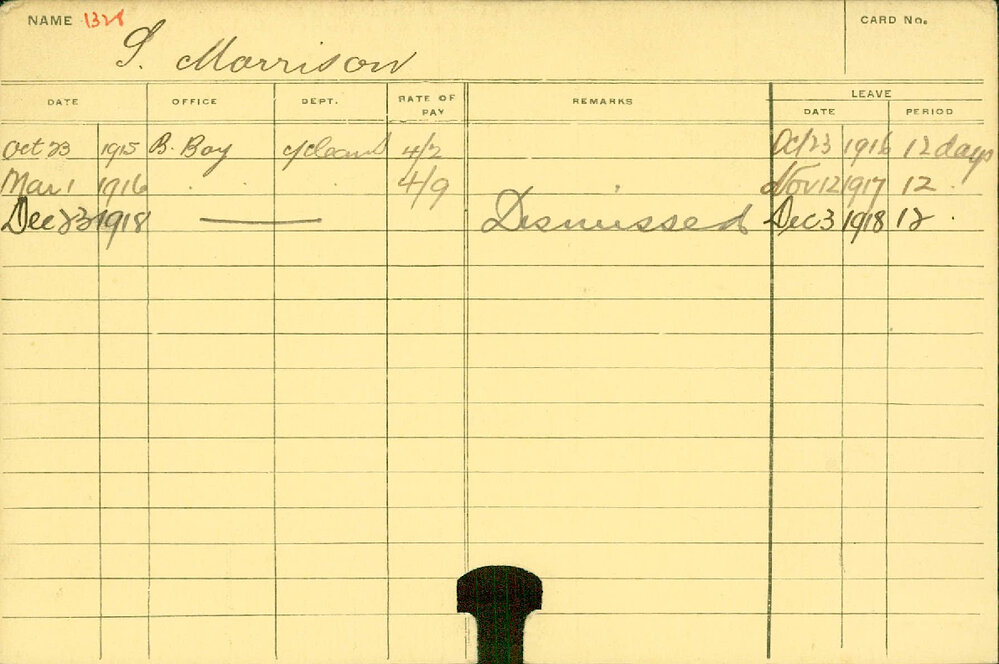 NAME 1328 CARD No.
S. Morrison
DATE OFFICE DEPT. RATE OF PAY REMARKS LEAVE
DATE PERIOD
Oct 23 1915 B. Boy C/Cleans 4/2 Oct 23 1916 12 days
Mar 1 1916 . . . 4/9 Nov 12 1917 12 .
Dec 23 1918 — Dismissed Dec 3 1918 12 .